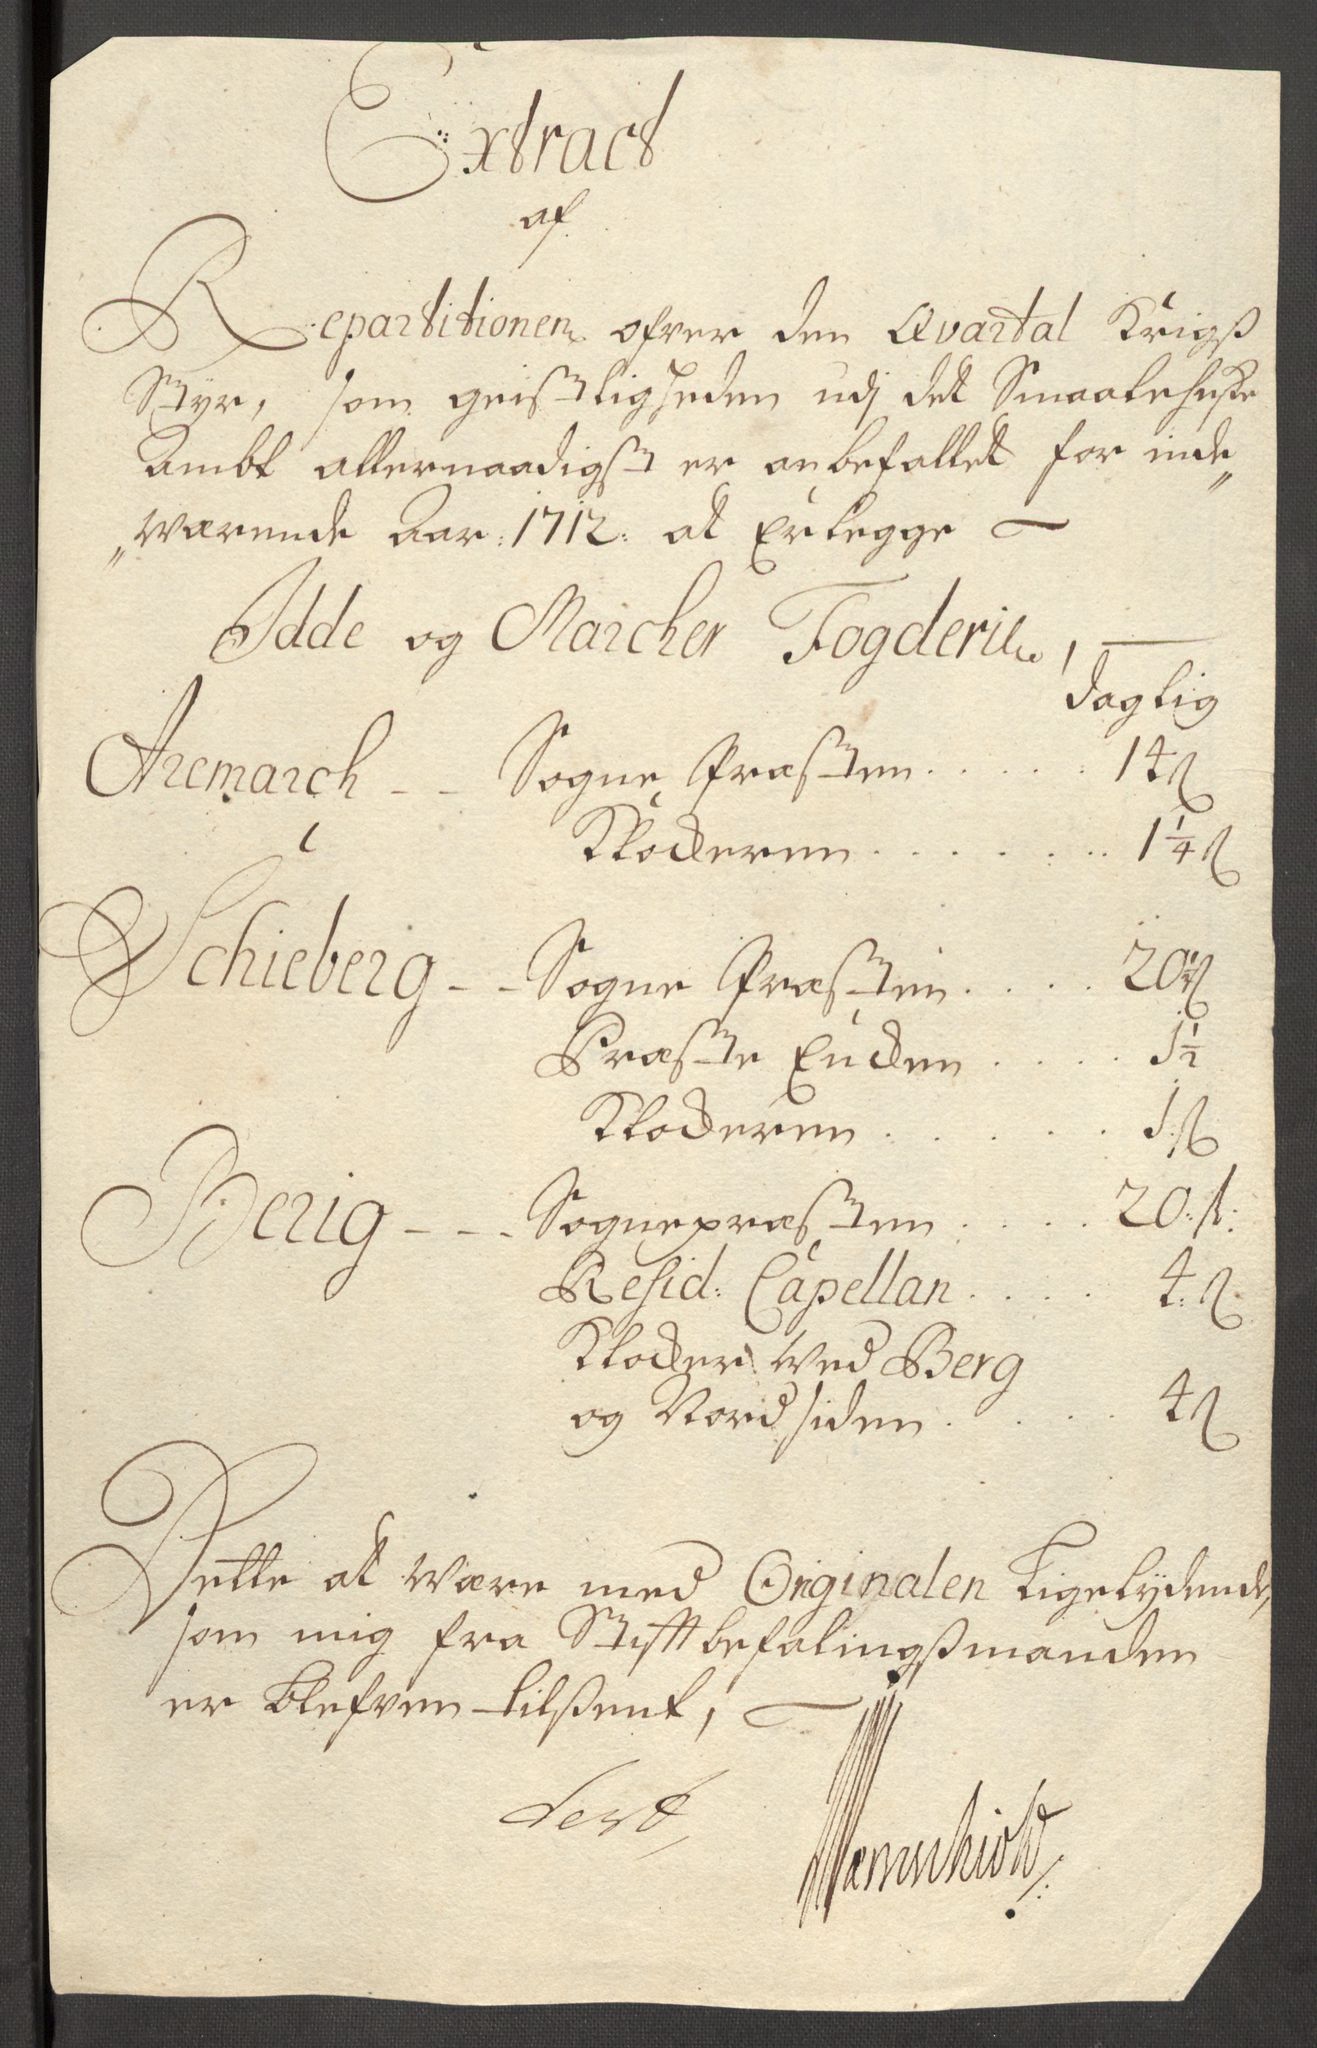 Extract
af
Repartitionen ofver den Qvartal Krigs
Styr, som geistligheden udj det Smaalehnske
Ambt allernaadigst er anbefallet for inde„
„værende Aar: 1712: at Erlegge
Idde og Marcher Fogderie,
daglig
Aremarch - - Sogne Præsten . . . . . 14 ß
Klockeren . . . . . . . 1 1/4 ß
Schieberg - - Sogne Præsten . . . . 20 ß
Præste Encken . . . . 1 1/2
Klockeren . . . . . 1 ß
Berig - - - Sognepræsten . . . . 20: ß:
Resid: Capellan . . . . 4: ß
Klocker Ved Berg
og Nordsiden . . . . 4 ß
Dette at være med Originalen Ligelydende,
som mig fra Stiftbefalingsmanden
er blefven tilsent,
test
Wærnschiold